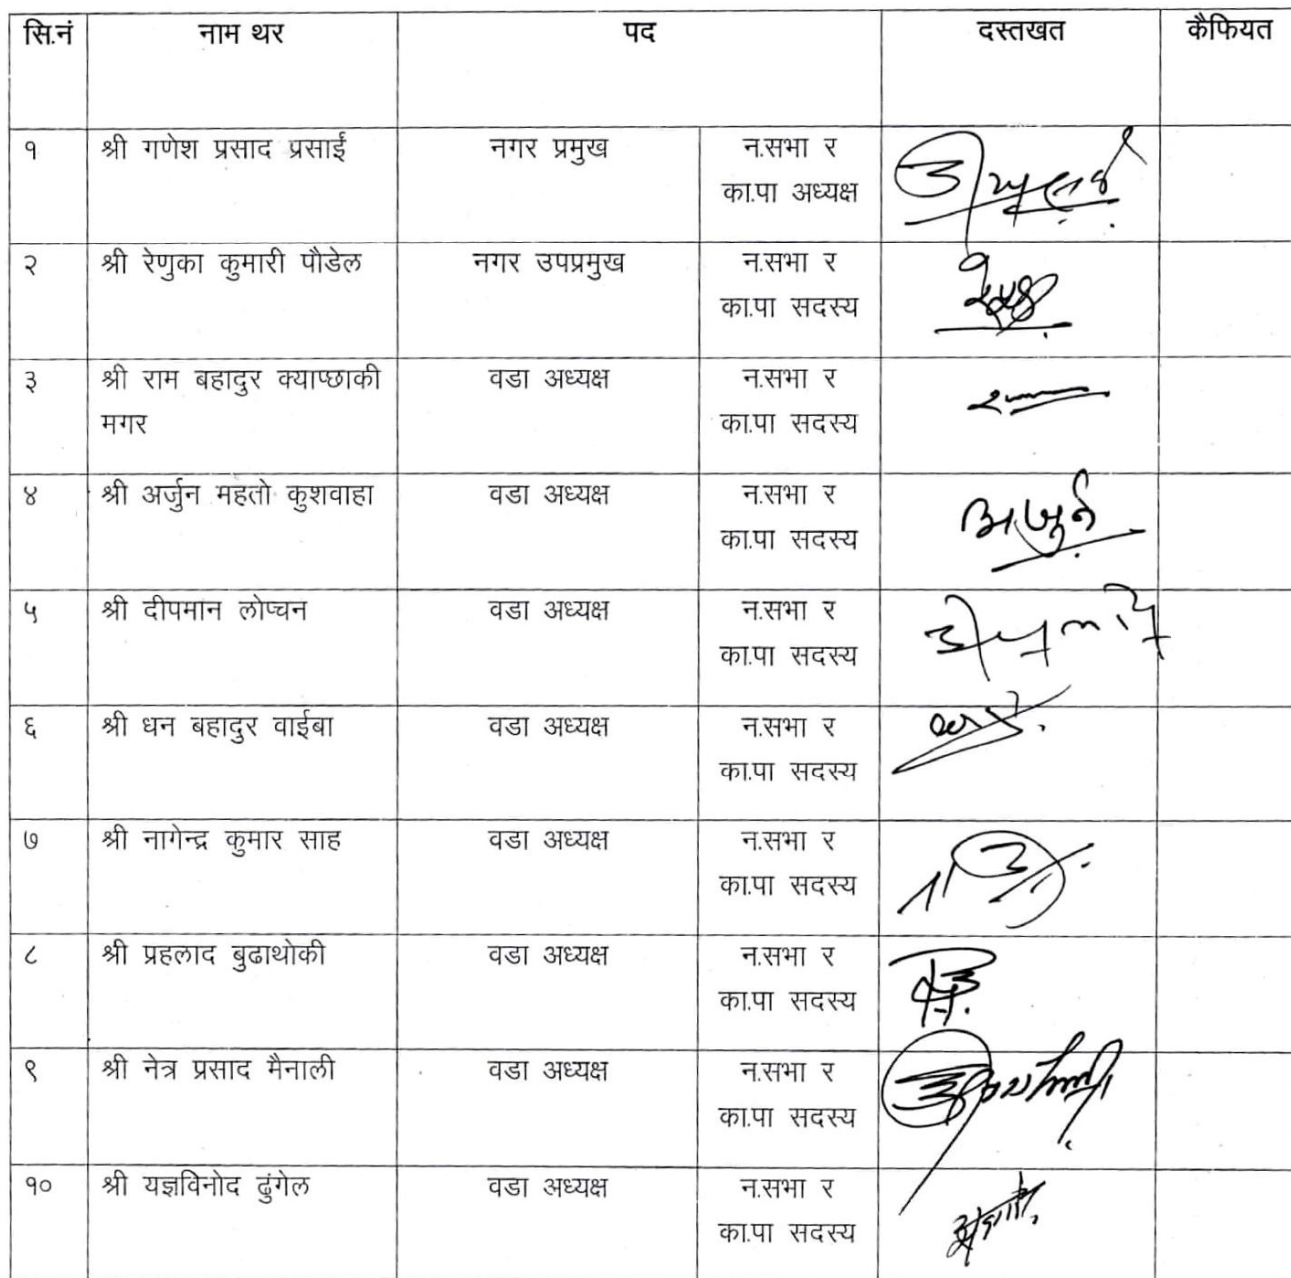 सि.नं नाम थर पद दस्तखत कैफियत
१ श्री गणेश प्रसाद प्रसाईं नगर प्रमुख न.सभा र
का.पा अध्यक्ष
२ श्री रेणुका कुमारी पौडेल नगर उपप्रमुख न.सभा र
का.पा सदस्य
३ श्री राम बहादुर क्याप्छाकी वडा अध्यक्ष न.सभा र
मगर का.पा सदस्य
४ श्री अर्जुन महतो कुशवाहा वडा अध्यक्ष न.सभा र अर्जुन
का.पा सदस्य
५ श्री दीपमान लोप्चन वडा अध्यक्ष न.सभा र
का.पा सदस्य
६ श्री धन बहादुर वाईबा वडा अध्यक्ष न.सभा र
का.पा सदस्य
७ श्री नागेन्द्र कुमार साह वडा अध्यक्ष न.सभा र
का.पा सदस्य
८ श्री प्रहलाद बुढाथोकी वडा अध्यक्ष न.सभा र
का.पा सदस्य
९ श्री नेत्र प्रसाद मैनाली वडा अध्यक्ष न.सभा र
का.पा सदस्य
१० श्री यज्ञविनोद ढुंगेल वडा अध्यक्ष न.सभा र
का.पा सदस्य